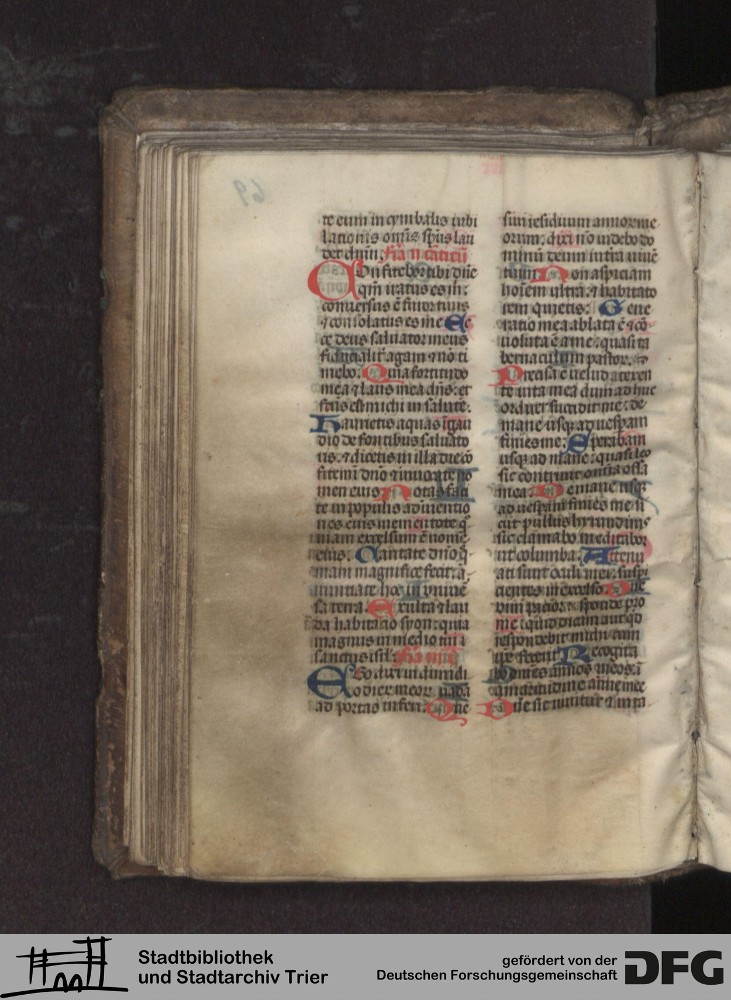 te eum in cymbalis iubi
lationis om̄is sp̄us lau
det dn̄m. fr̄a ii cāticū
Confitebor tibi dn̄e
qm̄ iratus es m̄:
conuersus ē furor tuus
⁊ consolatus es me Ec
ce deus saluator meus
fiducialit̄ agam ⁊ nō ti
mebo. Quia fortitudo
mea ⁊ laus mea dn̄s: et
fc̄us est michi in salutē.
Haurietis aquas ī gau
dio de fontibus saluato
ris. ⁊ dicetis in illa die cō
fitemī dn̄o ⁊ inuocate no
men eius Notas faci
te in populis adinuentio
nes eius mementote q̄
niam excelsum ē nomē
eius. Cantate dn̄o q̄
niam magnifice fecit: ā
nuntiate hoc in vniuē
sa terra Exulta ⁊ lau
da habitatio syon: quia
magnus in medio tui
sanctus isr̄l. fr̄a
Ego dixi in dimidi
o dierum meorū uadā
ad portas inferi. Que
siui residuum annorū me
orum. dixi nō uidebo do
minū deum in tr̄a uiuē
tium Non aspiciam
hoīem ultra: ⁊ habitato
rem quietis. Gene
ratio mea ablata ē ⁊ cō
uoluta ē a me: quasi ta
bernaculum pastor.
Precisa ē uelud a texen
te uita mea dum adhuc
ordirer succidit me: de
mane usq̄ ad uesp̄am
finies me. Sperabam
usq̄ ad mane: quasi leo
sic contriuit om̄ia ossa
mea. De mane usq̄
ad uesp̄am finies me si
cut pullus hyrundinis
sic clamabo meditabor
ut columba. Attenu
ati sunt oculi mei: suspi
cientes in excelso. Dn̄e
uim patior responde pro
me: quid dicam aut q̄d
respondebit michi cum
ip̄e fecerit Recogita
bo om̄es annos meos ī
amaritudine anime mee
Dn̄e sic uiuitur ⁊ in ta
69
Stadtbibliothek
und Stadtarchiv Trier
gefördert von der
Deutschen Forschungsgemeinschaft
DFG